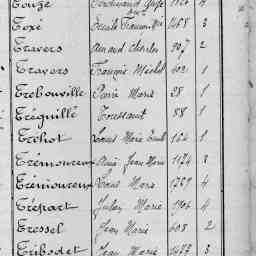 Touzé Ferdinand 4
Toxé François 1468 3
Travers Amand Charles 907 2
Travers François Michel 402 1
Trébouville Pierre Marie 28 1
Tréguillé Toussaint 88 1
Tréhot Louis Marie Emile 164 1
Trémoureux Marie Jean Marie 1124 3
Trémoureux Louis Marie 1729 4
Trépart Julien Marie 1906 4
Tressel Jean Marie 608 2
Tribodet Jean Marie 3